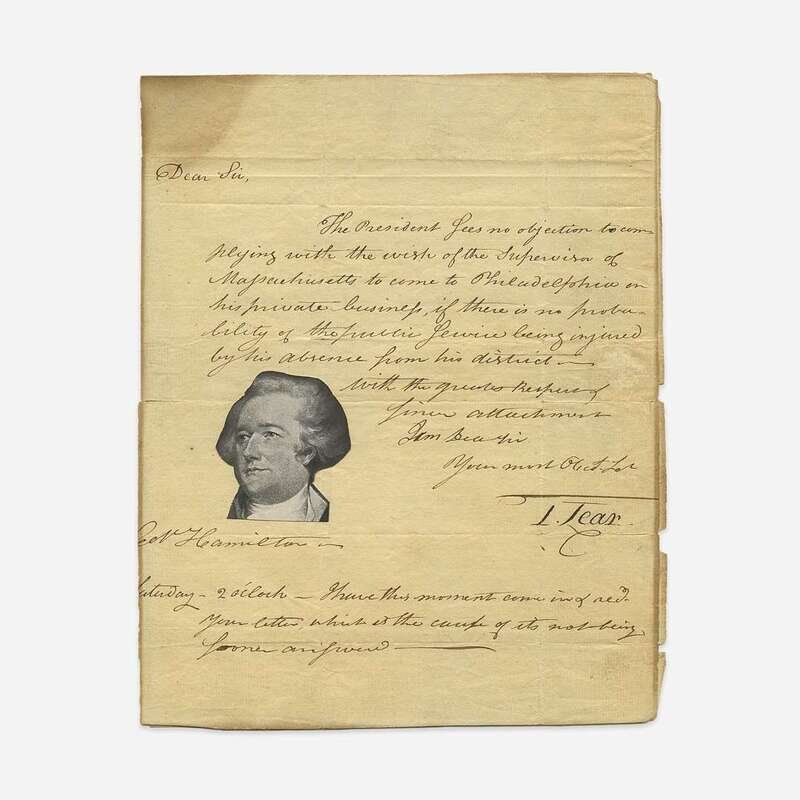 Dear Sir,
The President sees no objection to com-
plying with the wish of the Supervisor of
Massachusetts to come to Philadelphia on
his private business, if there is no proba-
bility of the public Service being injured
by his absence from his district —
With the greatest Respect &
sincere attachment
I am Dear Sir
Your most Obed.
T. Lear.
Hamilton —
Saturday - 2 o'Clock - I have this moment come in & recd.
Your letter which is the cause of its not being
sooner answered —